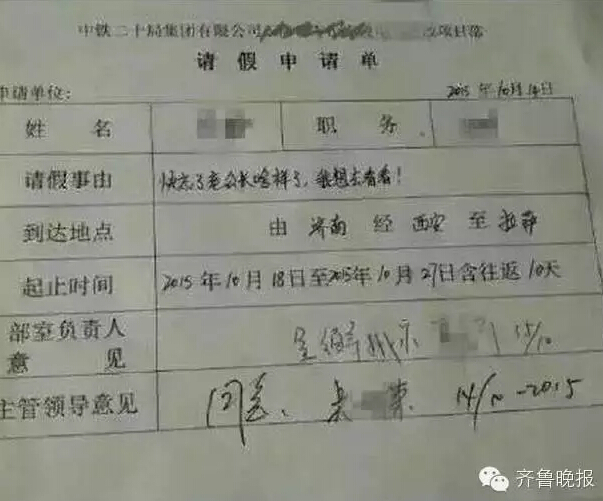 中铁二十局集团有限公司 项目部
请假申请单
申请单位: 2015年10月14日
姓名 职务
请假事由 快忘了老公长啥样了,我想去看看!
到达地点 由 济南 经 西安 至 拉萨
起止时间 2015年10月18日至2015年10月27日含往返10天
部室负责人
意见 呈领导批示 15/10
主管领导意见 同意. 14/10-2015
齐鲁晚报